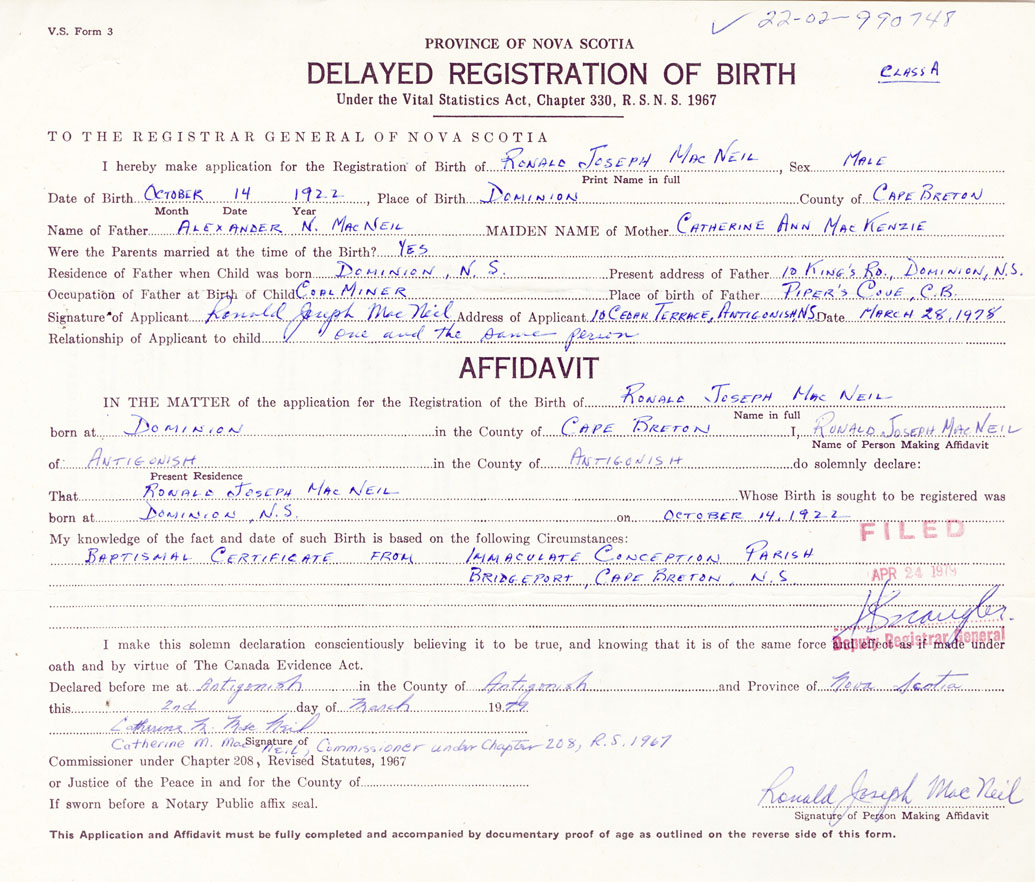 V.S. Form 3
✓ 22-02-990748
PROVINCE OF NOVA SCOTIA
DELAYED REGISTRATION OF BIRTH
CLASS A
Under the Vital Statistics Act, Chapter 330, R. S. N. S. 1967
TO THE REGISTRAR GENERAL OF NOVA SCOTIA
I hereby make application for the Registration of Birth of RONALD JOSEPH MACNEIL, Sex MALE
Print Name in full
Date of Birth OCTOBER 14 1922, Place of Birth DOMINION County of CAPE BRETON
Month Date Year
Name of Father ALEXANDER N. MACNEIL MAIDEN NAME of Mother CATHERINE ANN MACKENZIE
Were the Parents married at the time of the Birth? YES
Residence of Father when Child was born DOMINION, N.S. Present address of Father 10 KING'S RD., DOMINION, N.S.
Occupation of Father at Birth of Child COAL MINER Place of birth of Father PIPER'S COVE, C.B.
Signature of Applicant Ronald Joseph MacNeil Address of Applicant 10 CEDAR TERRACE, ANTIGONISH, NS Date MARCH 28, 1978
Relationship of Applicant to child one and the same person
AFFIDAVIT
IN THE MATTER of the application for the Registration of the Birth of RONALD JOSEPH MACNEIL
Name in full
born at DOMINION in the County of CAPE BRETON I, RONALD JOSEPH MACNEIL
Name of Person Making Affidavit
of ANTIGONISH in the County of ANTIGONISH do solemnly declare:
Present Residence
That RONALD JOSEPH MACNEIL Whose Birth is sought to be registered was
born at DOMINION, N.S. on OCTOBER 14, 1922
My knowledge of the fact and date of such Birth is based on the following Circumstances:
FILED
BAPTISMAL CERTIFICATE FROM IMMACULATE CONCEPTION PARISH
BRIDGEPORT, CAPE BRETON, N.S
APR 24 1979
Deputy Registrar General
I make this solemn declaration conscientiously believing it to be true, and knowing that it is of the same force and effect as if made under
oath and by virtue of The Canada Evidence Act.
Declared before me at Antigonish in the County of Antigonish and Province of Nova Scotia
this 2nd day of March 1979
Catherine M. MacNeil
Signature of
Catherine M. MacNeil, Commissioner under Chapter 208, R.S. 1967
Commissioner under Chapter 208, Revised Statutes, 1967
or Justice of the Peace in and for the County of
If sworn before a Notary Public affix seal.
Ronald Joseph MacNeil
Signature of Person Making Affidavit
This Application and Affidavit must be fully completed and accompanied by documentary proof of age as outlined on the reverse side of this form.